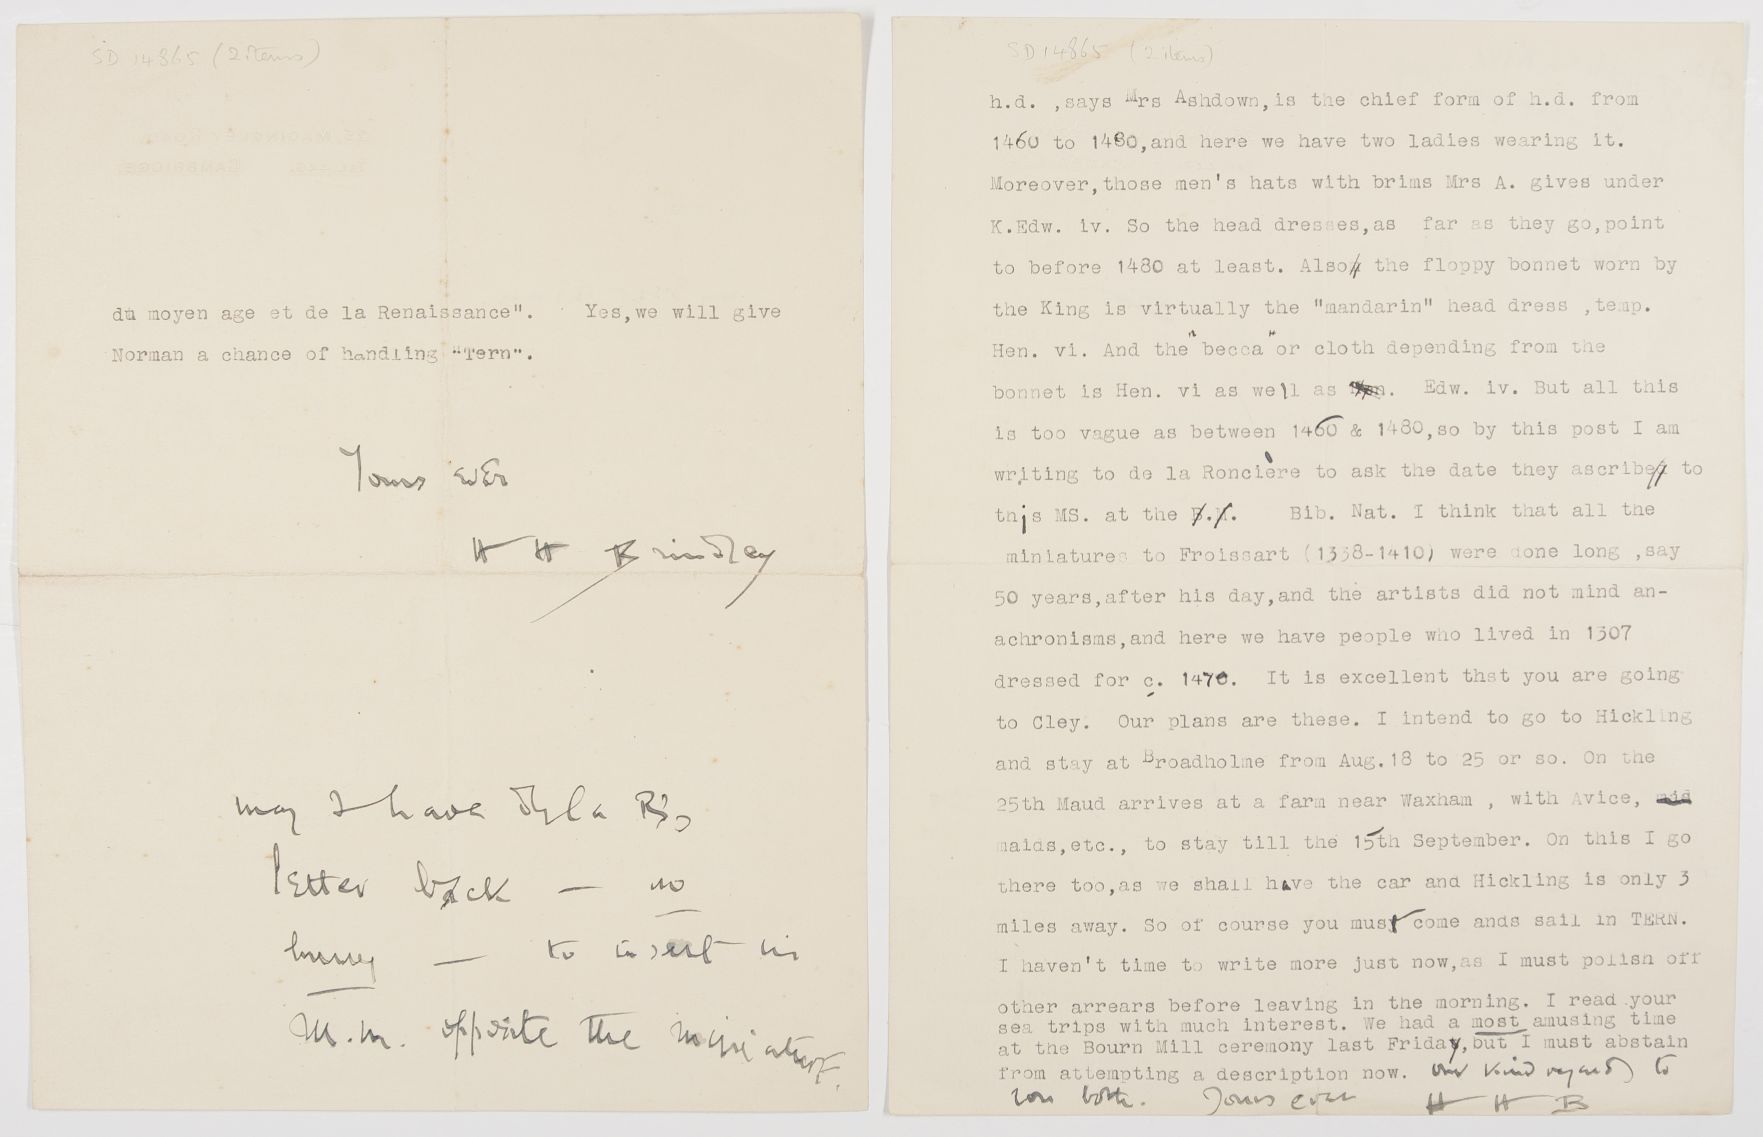 SD 14865 (2 items)
du moyen age et de la Renaissance".  Yes,we will give
Norman a chance of handling "Tern".
Yours ever
H H Brindley
may I have de la R's
letter back — no
hurry — to insert in
M.M. opposite the miniature.
SD 14865 (2 items)
h.d. ,says Mrs Ashdown,is the chief form of h.d. from
1460 to 1480,and here we have two ladies wearing it.
Moreover,those men's hats with brims Mrs A. gives under
K.Edw. iv. So the head dresses,as  far as they go,point
to before 1480 at least. Also the floppy bonnet worn by
the King is virtually the "mandarin" head dress ,temp.
Hen. vi. And the "becca" or cloth depending from the
bonnet is Hen. vi as well as Edw. iv. But all this
is too vague as between 1460 & 1480,so by this post I am
writing to de la Roncière to ask the date they ascribe to
this MS. at the Bib. Nat. I think that all the
miniatures to Froissart (1338-1410) were done long ,say
50 years,after his day,and the artists did not mind an-
achronisms,and here we have people who lived in 1307
dressed for c. 1470.  It is excellent that you are going
to Cley.  Our plans are these. I intend to go to Hickling
and stay at Broadholme from Aug.18 to 25 or so. On the
25th Maud arrives at a farm near Waxham , with Avice,
maids,etc., to stay till the 15th September. On this I go
there too,as we shall have the car and Hickling is only 3
miles away. So of course you must come ands sail in TERN.
I haven't time to write more just now,as I must polish off
other arrears before leaving in the morning. I read your
sea trips with much interest. We had a most amusing time
at the Bourn Mill ceremony last Friday,but I must abstain
from attempting a description now. our kind regards to
you both.  Yours ever  H H B